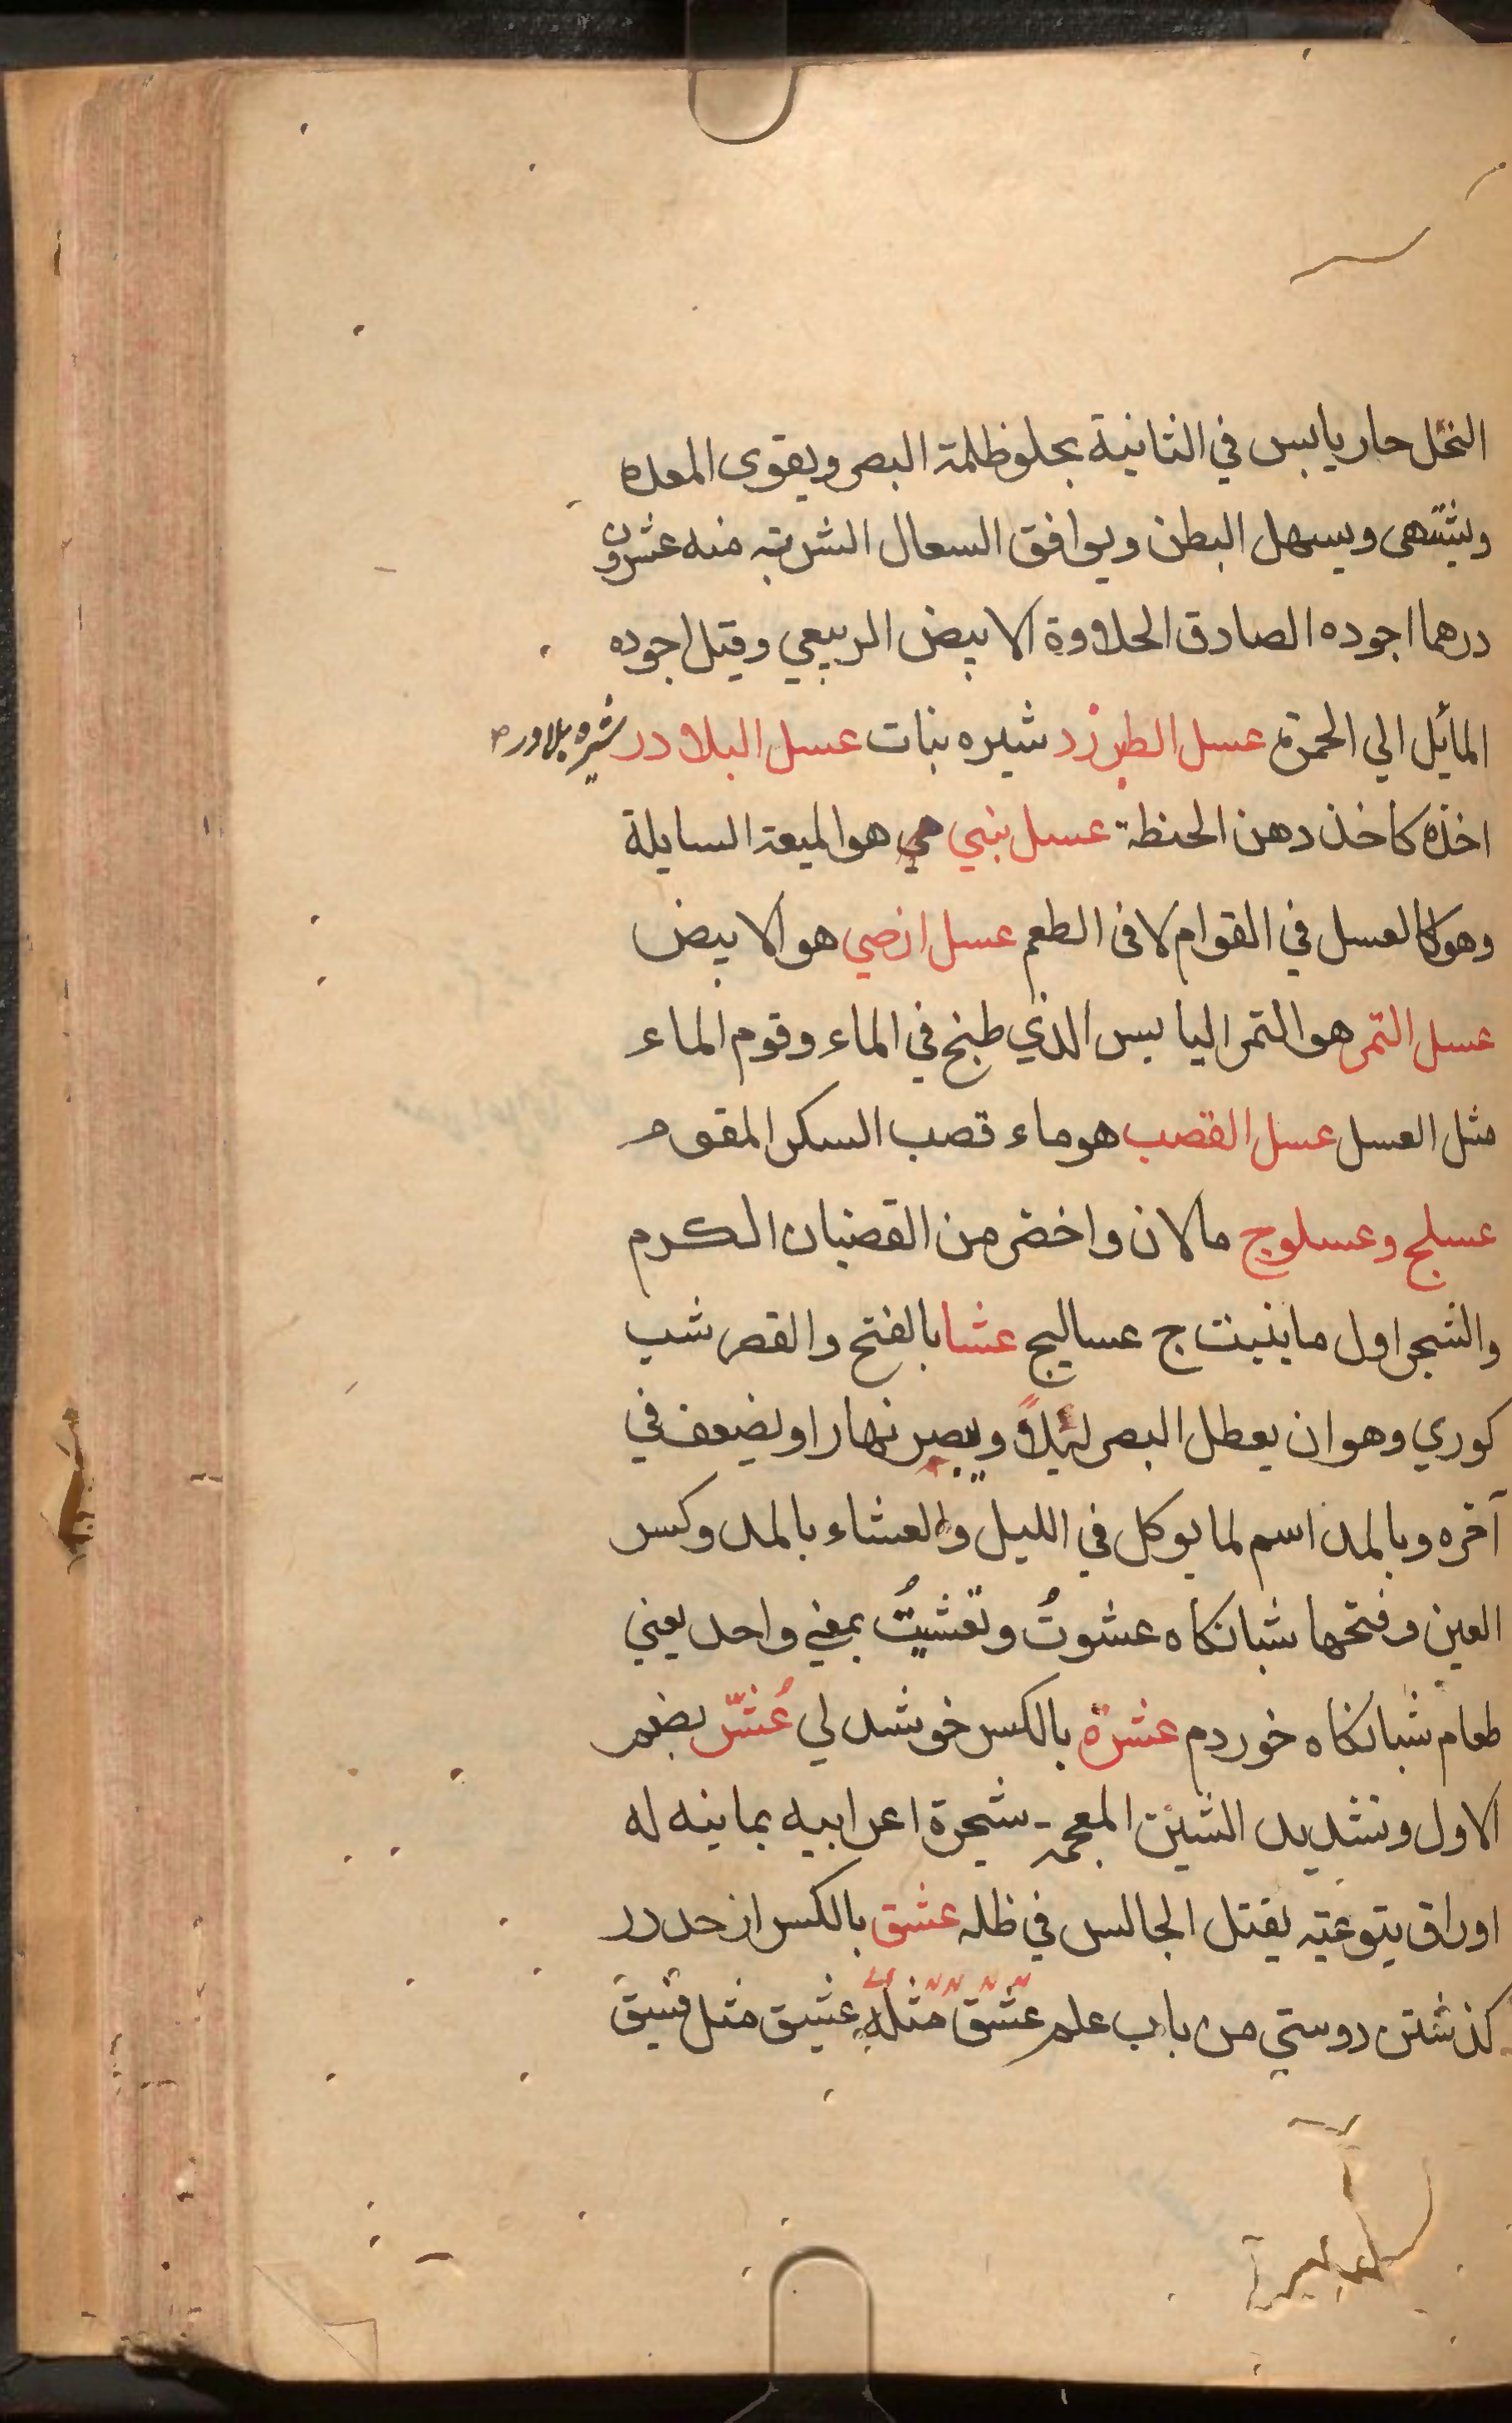 النحل حار يابس في الثانية يجلو ظلمة البصر ويقوى المعده
ويشتهى ويسهل البطن ويوافق السعال الشربته منه عشرون
درهما اجوده الصادق الحلاوة الابيض الربيعي وقيل اجوده
المائل الي الحمرة عسل الطبرزد شيره نبات عسل البلادر شيره بلادر
اخذه كاخذ دهن الحنطة عسل بني هي هو الميعة السايلة
وهو كالعسل في القوام لا فى الطعم عسل ارضي هو الابيض
عسل التمر هو التمر اليابس الذي طبخ في الماء وقوم الماء
مثل العسل عسل القصب هو ماء قصب السكر المقوم
عسلج وعسلوج ما لان واخضر من القضبان الكرم
والشجر اول ما ينبت ج عساليج عشا بالفتح والقصر شب
كوري وهو ان يعطل البصر ليلاً ويبصر نهارا ويضعف في
آخره وبالمد اسم لما يوكل في الليل والعشاء بالمد وكسر
العين وفتحها شبانكاه عشوتُ وتعشيتُ بمعني واحد يعني
طعام شبانكاه خوردم عشرة بالكسر خوشدلي عُشّر بضم
الاول وتشديد الشين المعجمه شجرة اعرابيه يمانيه له
اوراق يتوعيته يقتل الجالس في ظله عشق بالكسر از حد در
كذشتن دوستي من باب علم عشق مثله عشيق مثل فسيق